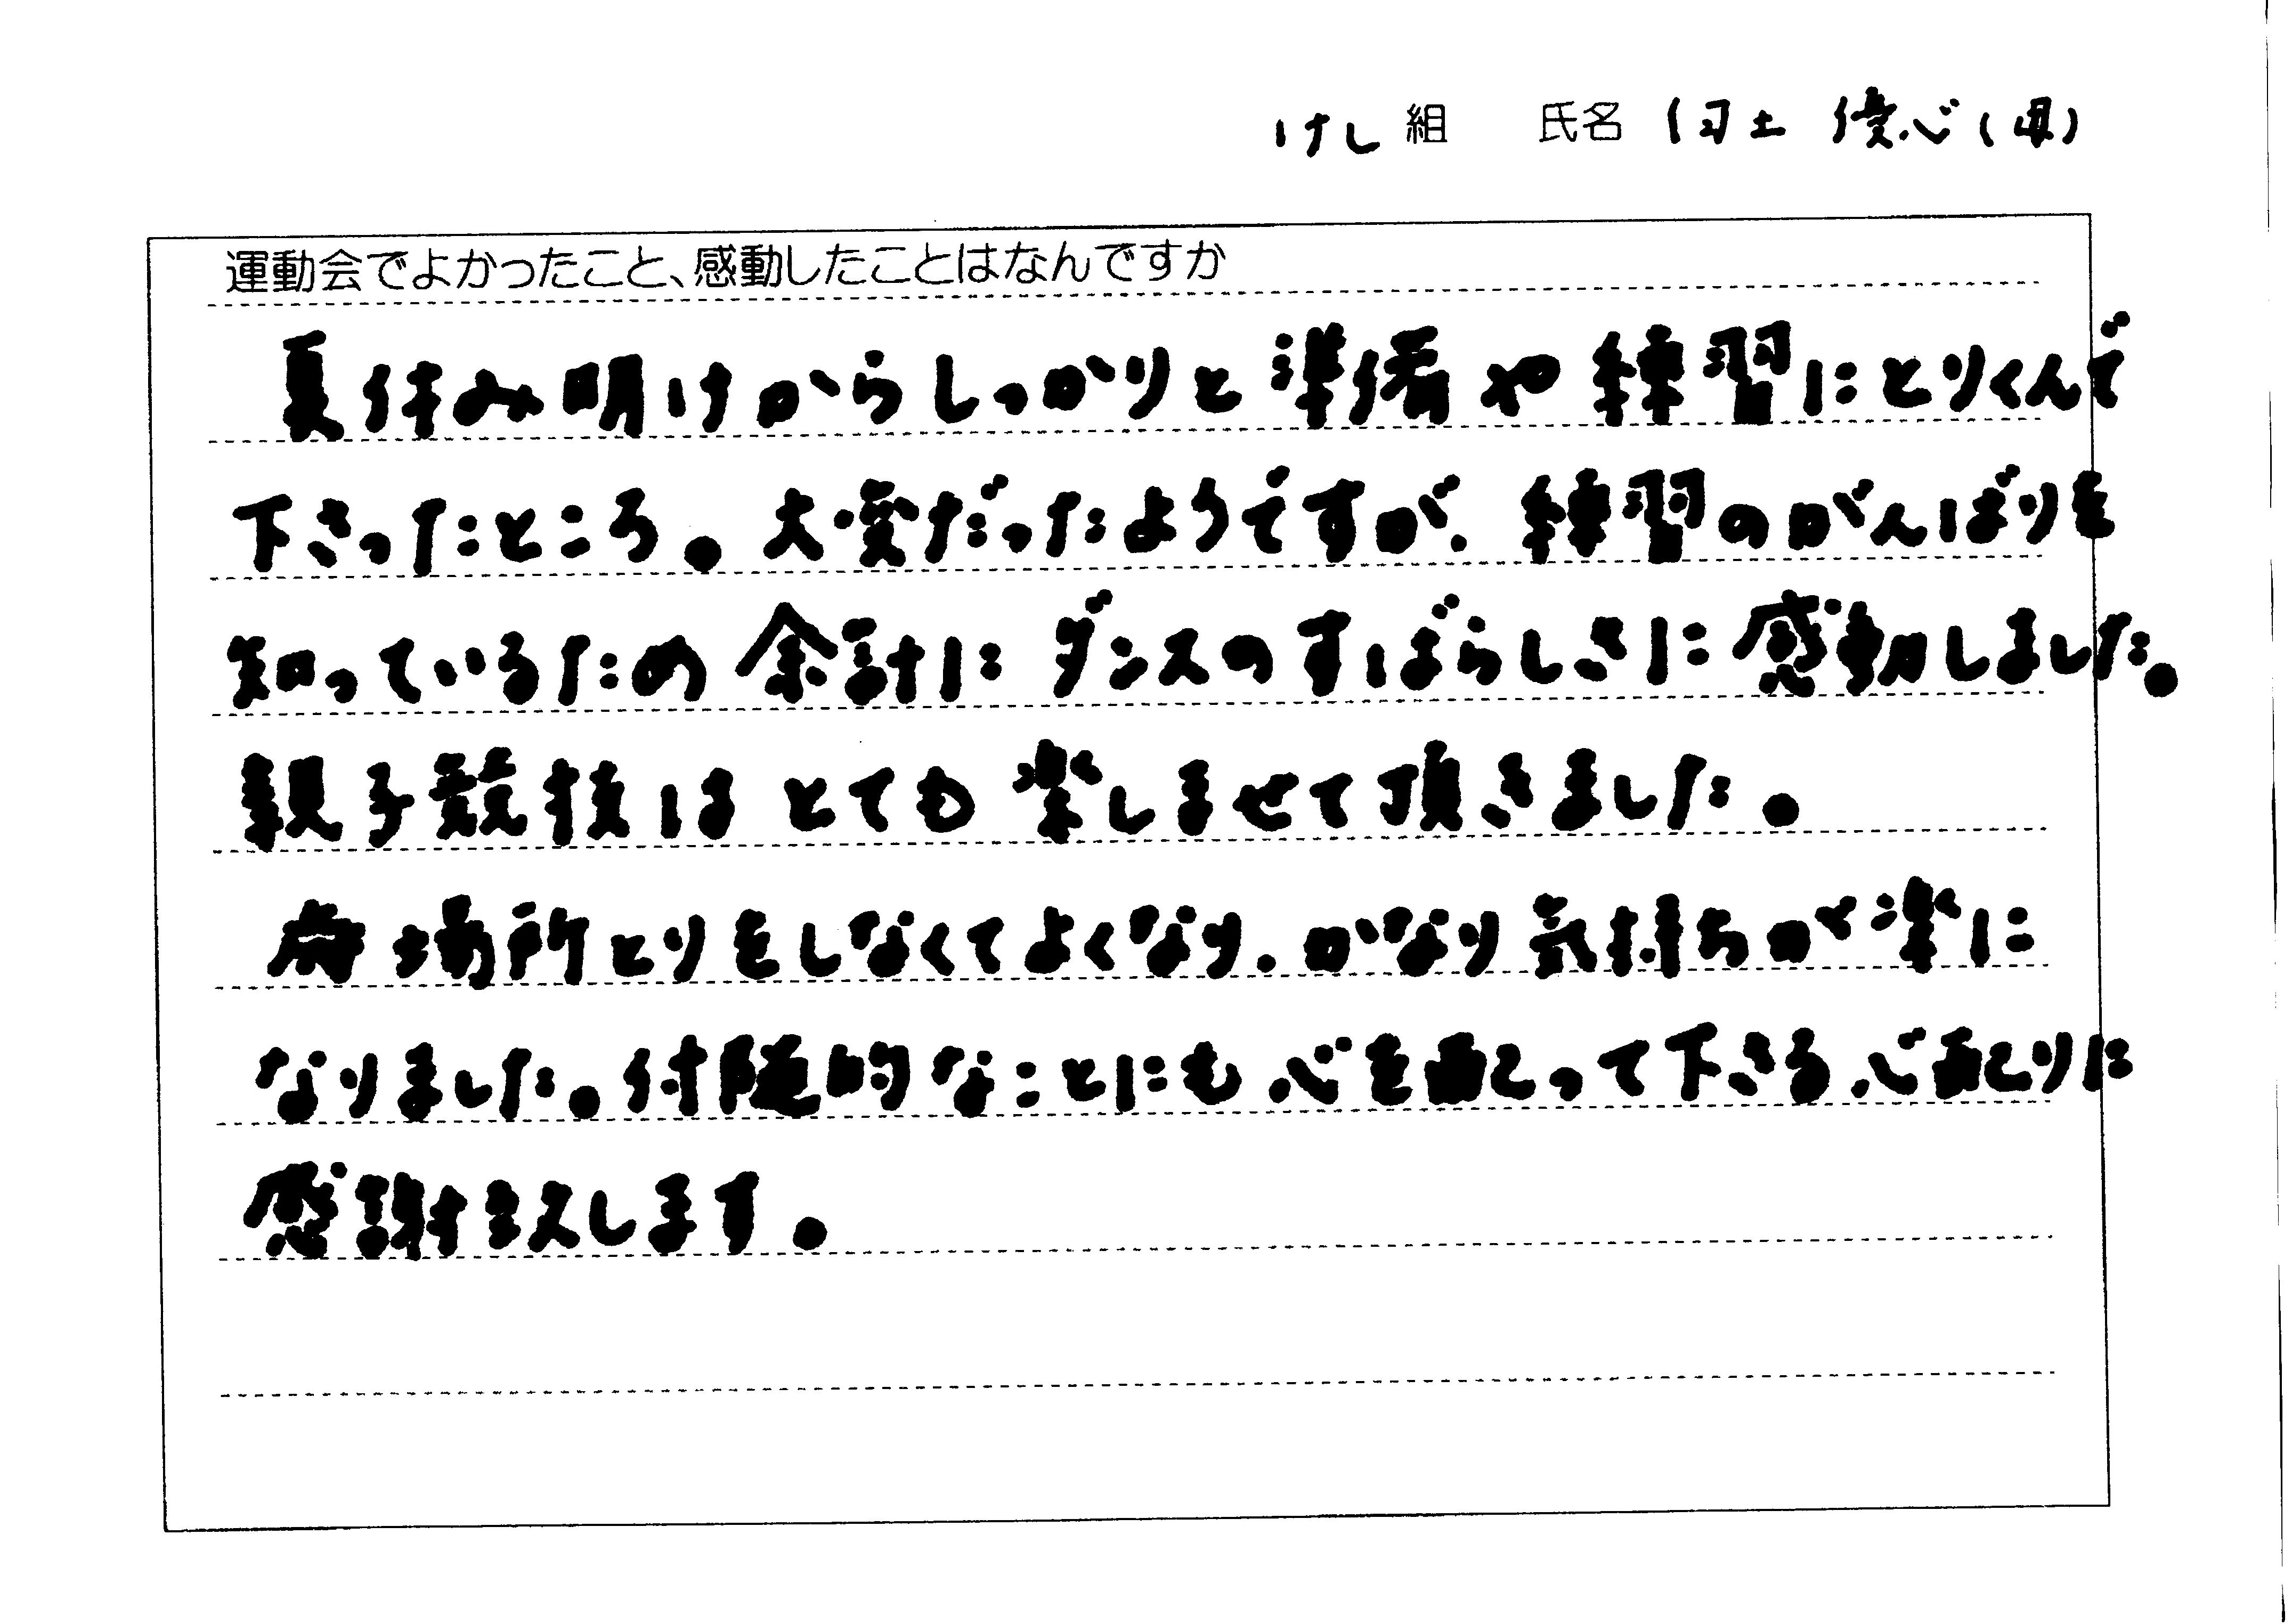 けし組 氏名 優心(母)
運動会でよかったこと、感動したことはなんですか
夏休み明けからしっかりと準備や練習にとりくんで
下さったところ。大変だったようですが、練習のがんばりを
知っているため余計にダンスのすばらしさに感動しました。
親子競技はとても楽しませて頂きました。
席場所とりをしなくてよくなり、かなり気持ちが楽に
なりました。付随的なことにも心を配って下さる心配りに
感謝致します。